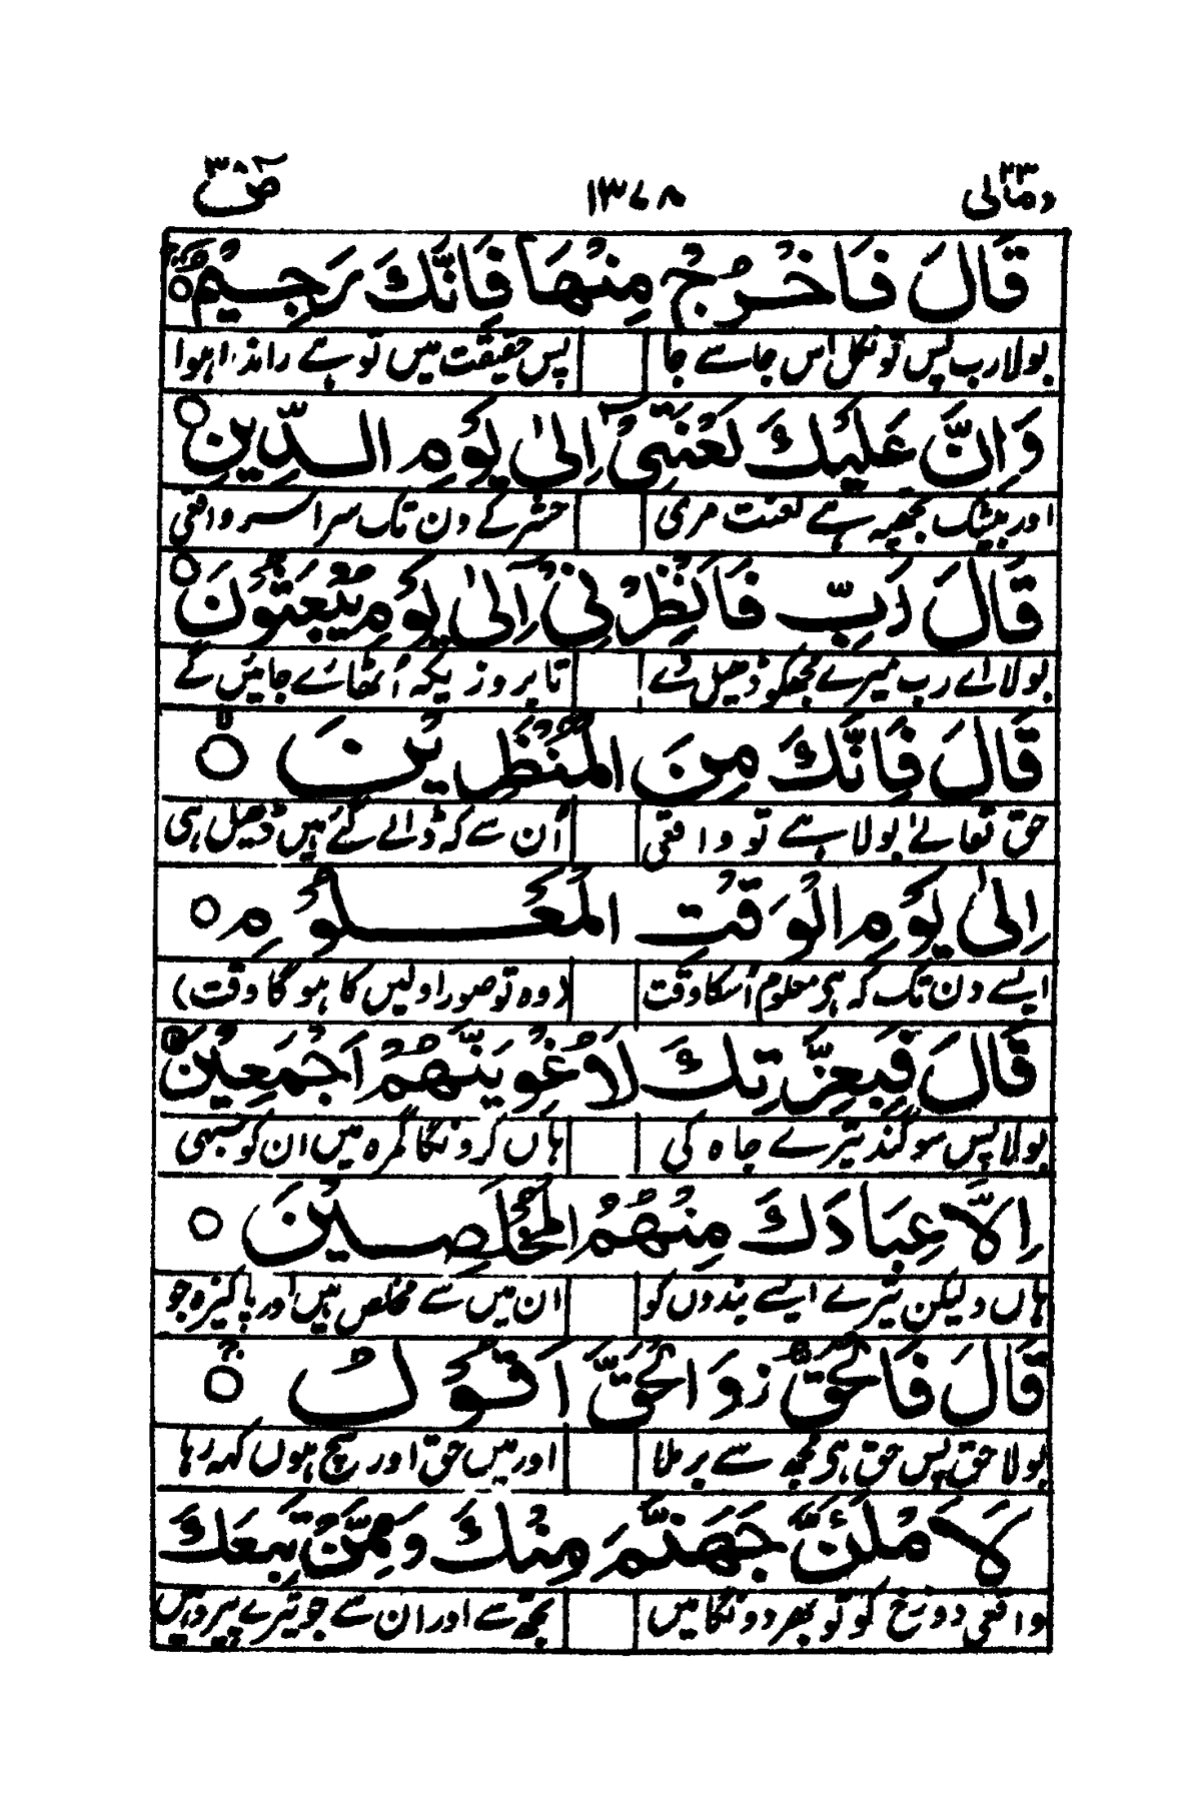 ومالی ۲۳ ۱۳۷۸ صٓ ۳۸
قَالَ فَاخْرُجْ مِنْهَا فَاِنَّكَ رَجِيْمٌ
بولا رب پس تو نکل اس جا سے جا پس حقیقت میں تو ہے راندا ہوا
وَاِنَّ عَلَيْكَ لَعْنَتِيْٓ اِلٰى يَوْمِ الدِّيْنِ
اور بیشک تجھپہ ہے لعنت مری حشر کے دن تک سراسر واقعی
قَالَ رَبِّ فَاَنْظِرْنِيْٓ اِلٰى يَوْمِ يُبْعَثُوْنَ
بولا اے رب میرے مجھکو ڈھیل دے تا بروزیکہ اُٹھائے جائیں گے
قَالَ فَاِنَّكَ مِنَ الْمُنْظَرِيْنَ
حق تعالےٰ بولا ہے تو واقعی اُن سے کہ ڈالے گئے ہیں ڈھیل ہی
اِلٰى يَوْمِ الْوَقْتِ الْمَعْلُوْمِ
ایسے دن تک کہ ہی معلوم اُسکا وقت (وہ تو صور اولیں کا ہوگا وقت)
قَالَ فَبِعِزَّتِكَ لَاُغْوِيَنَّهُمْ اَجْمَعِيْنَ
بولا پس سوگند تیرے جاہ کی ہاں کرونگا گمرہ میں ان کو سبھی
اِلَّا عِبَادَكَ مِنْهُمُ الْمُخْلَصِيْنَ
ہاں ولیکن تیرے ایسے بندوں کو ان میں سے مخلص ہیں اور پاکیزہ جو
قَالَ فَالْحَقُّ ز وَالْحَقَّ اَقُوْلُ
بولا حق پس حق ہی مجھ سے برملا اور میں حق اور سچ ہوں کہہ رہا
لَاَمْلَئَنَّ جَهَنَّمَ مِنْكَ وَمِمَّنْ تَبِعَكَ
واقعی دوزخ کو تو بھر دونگا میں تجھ سے اور ان سے جو تیرے پیرو ہیں